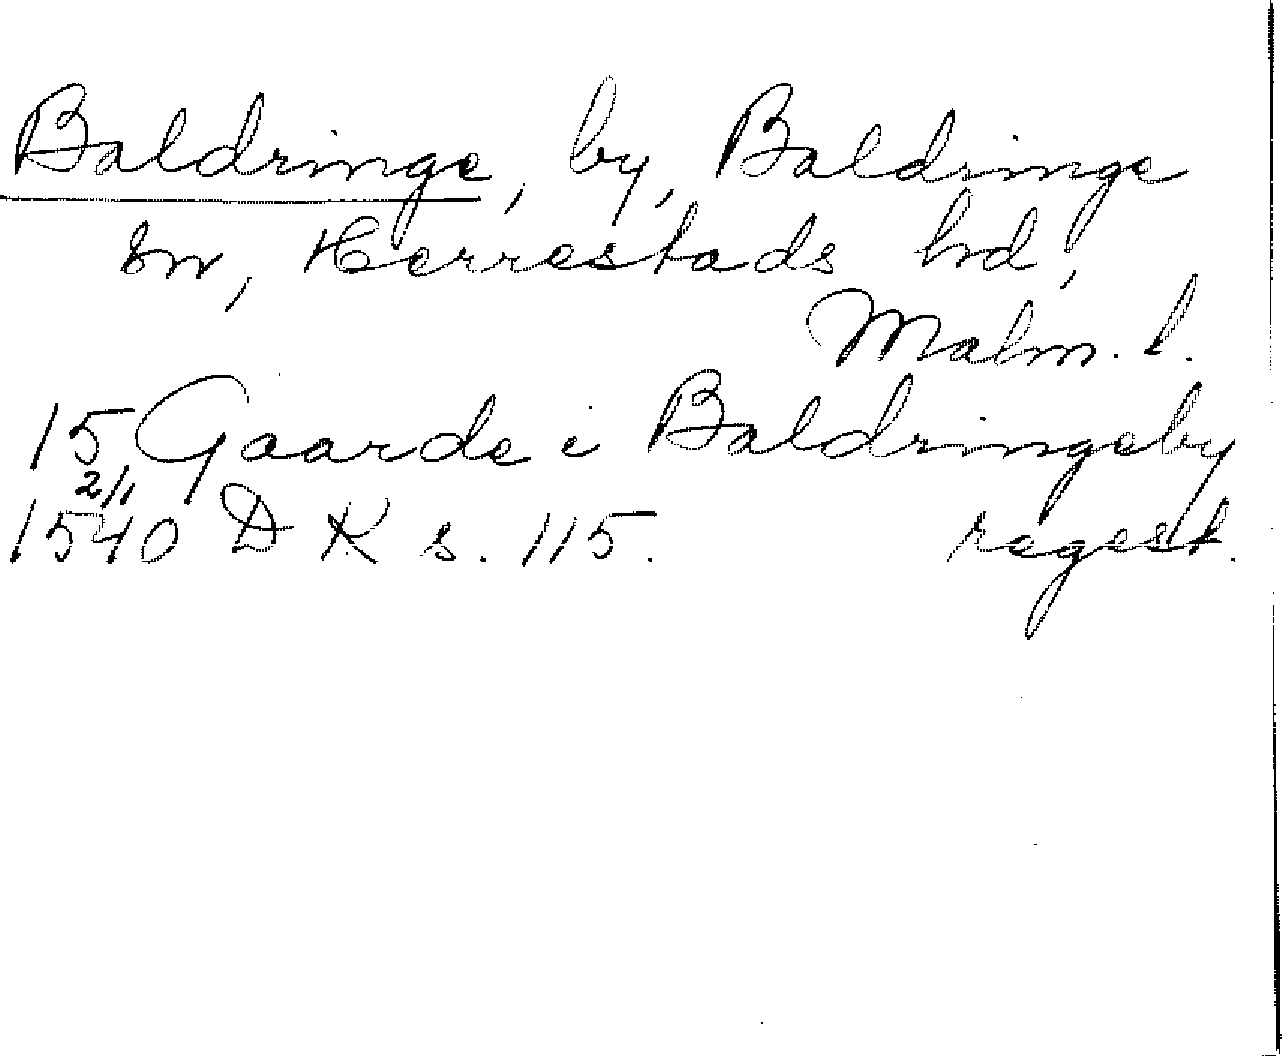 Baldringe, by, Baldringe
sn, Herrestads hd,
Malm. l.
15 Gaarde i Baldringeby
2/1
1540 DK s. 115. regest.